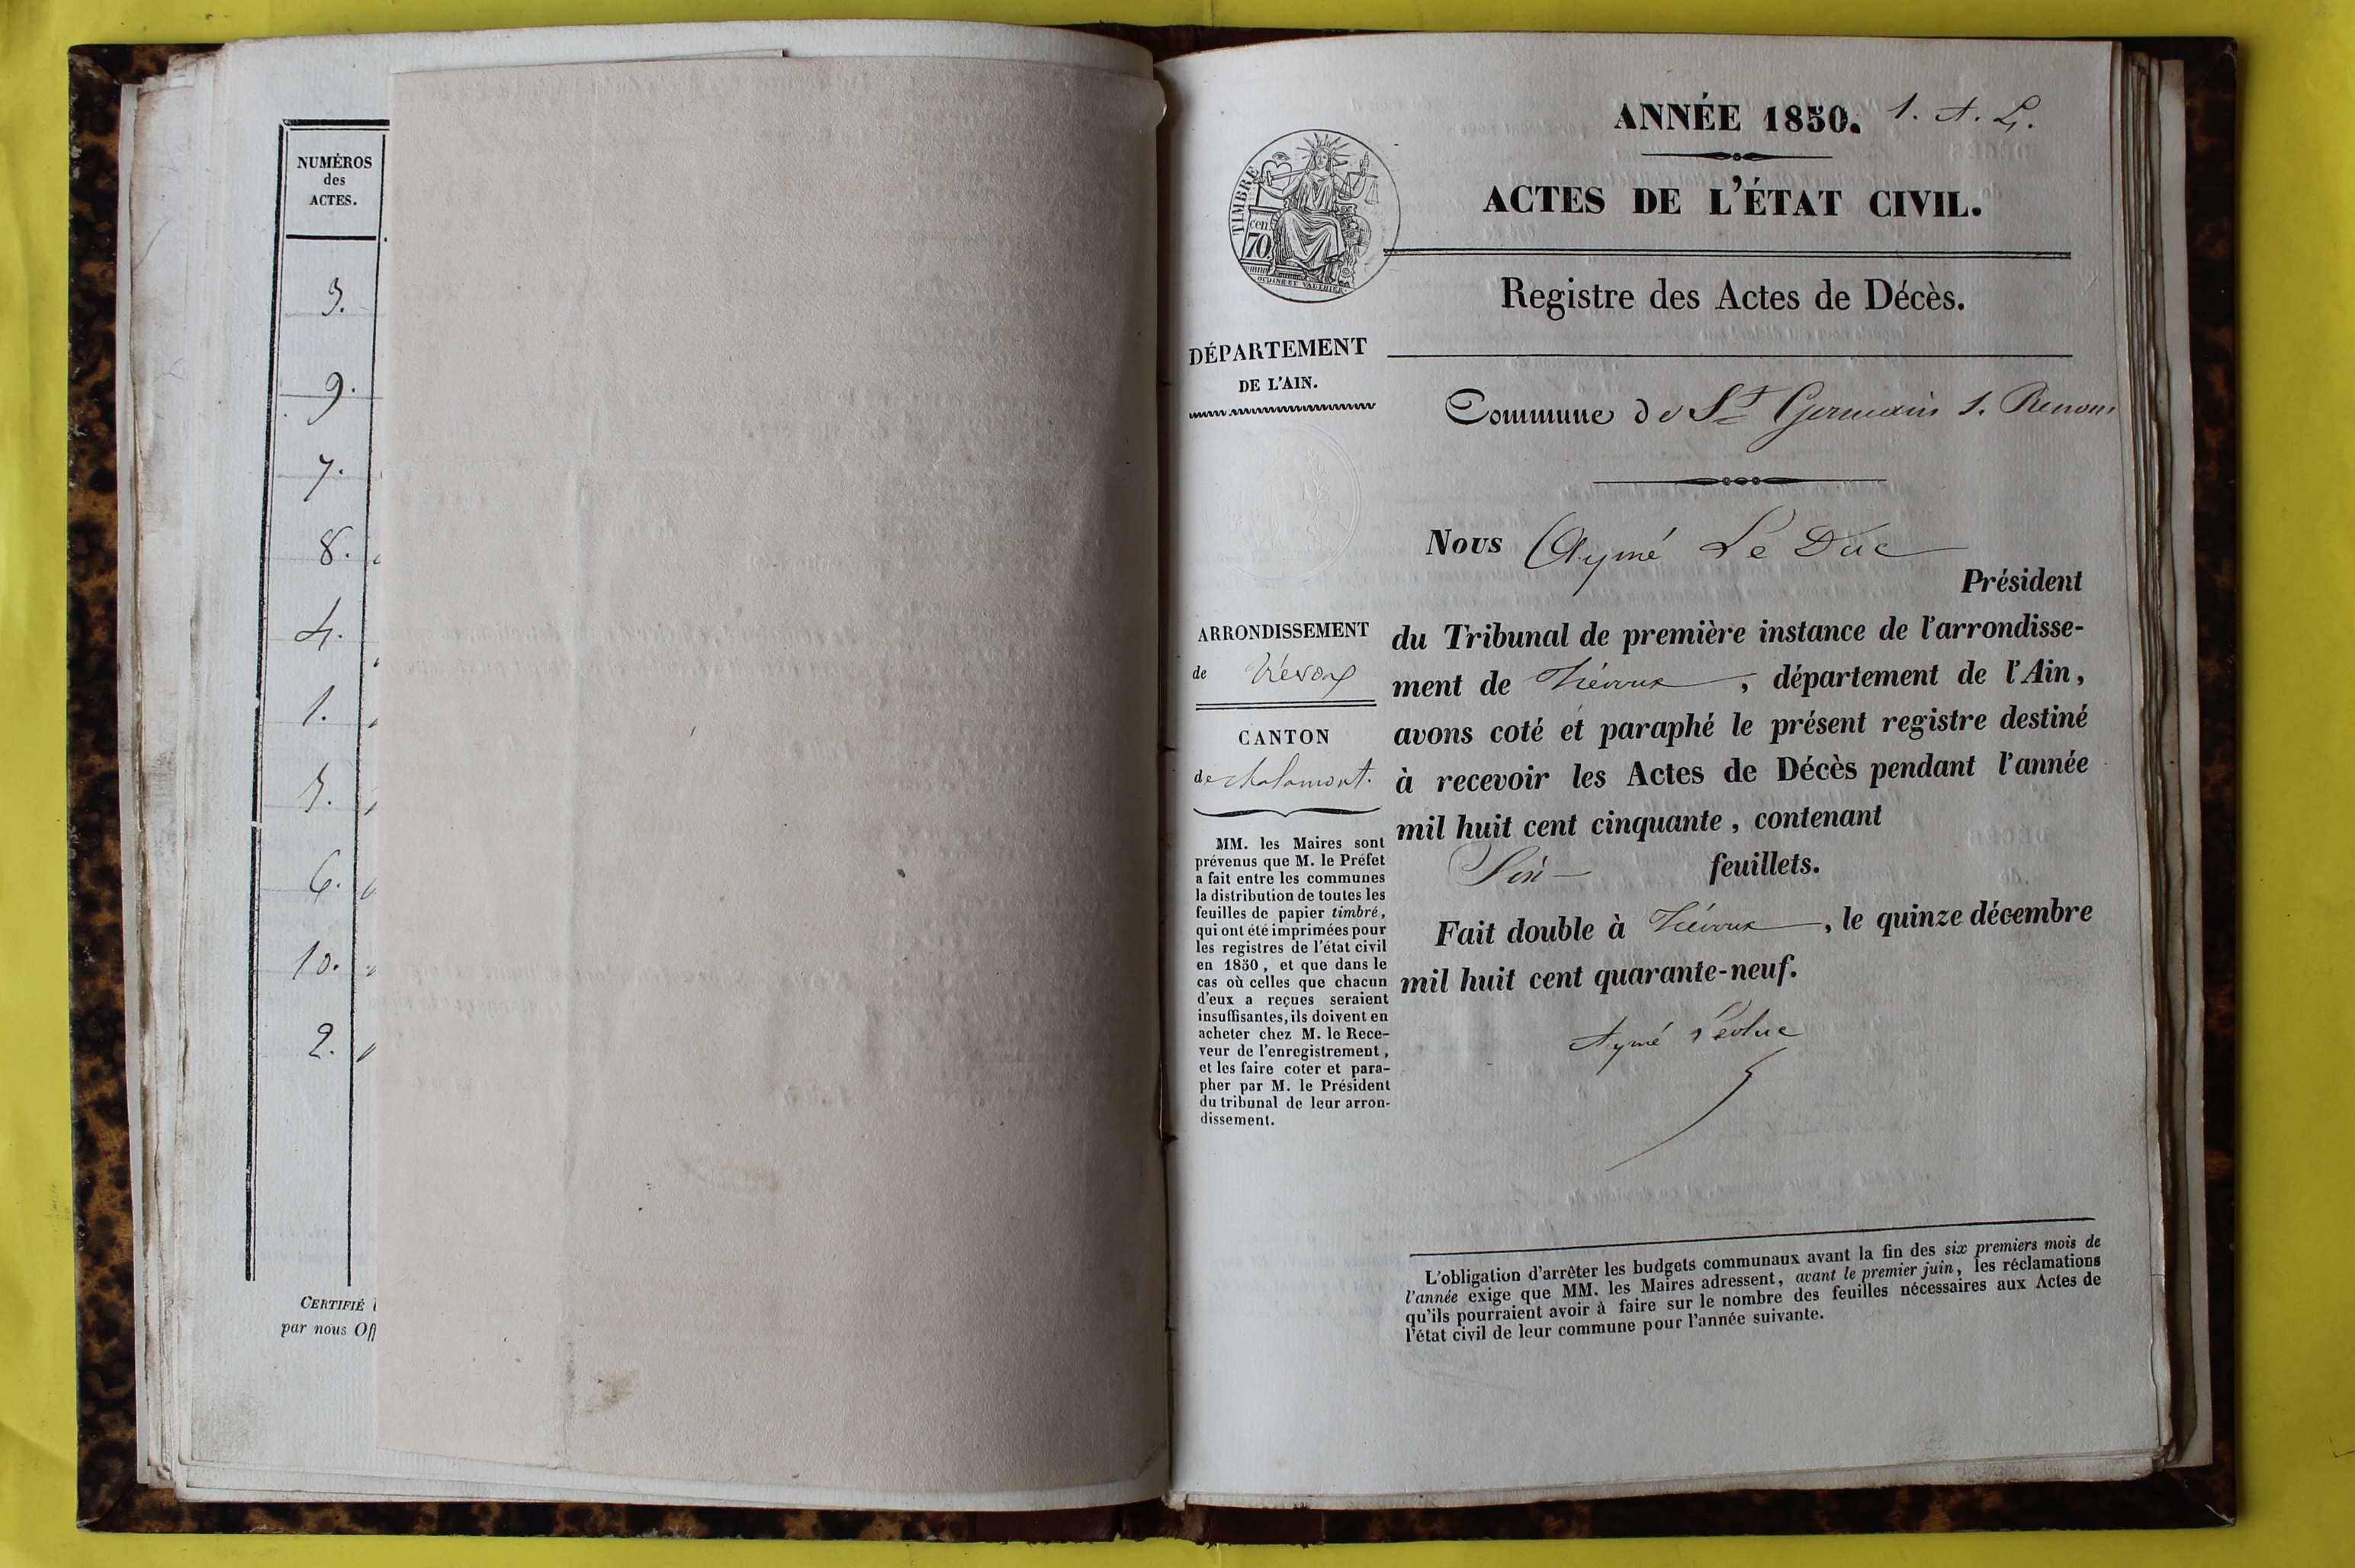 NUMÉROS
des
ACTES.
3.
9.
7.
8.
4.
1.
5.
6.
10.
2.
CERTIFIÉ
par nous Off
ANNÉE 1850. 1. A. L.
TIMBRE
cen.
70
ACTES DE L'ÉTAT CIVIL.
Registre des Actes de Décès.
DÉPARTEMENT
DE L'AIN.
Commune de St Germain s. Renom
Nous Aymé Le Duc
Président
du Tribunal de première instance de l'arrondisse-
ment de Trévoux, département de l'Ain,
avons coté et paraphé le présent registre destiné
à recevoir les Actes de Décès pendant l'année
mil huit cent cinquante, contenant
Six feuillets.
Fait double à Trévoux, le quinze décembre
mil huit cent quarante-neuf.
Aymé Leduc
ARRONDISSEMENT
de Trévoux
CANTON
de chalamont.
MM. les Maires sont
prévenus que M. le Préfet
a fait entre les communes
la distribution de toutes les
feuilles de papier timbré,
qui ont été imprimées pour
les registres de l'état civil
en 1850, et que dans le
cas où celles que chacun
d'eux a reçues seraient
insuffisantes, ils doivent en
acheter chez M. le Rece-
veur de l'enregistrement,
et les faire coter et para-
pher par M. le Président
du tribunal de leur arron-
dissement.
L'obligation d'arrêter les budgets communaux avant la fin des six premiers mois de
l'année exige que MM. les Maires adressent, avant le premier juin, les réclamations
qu'ils pourraient avoir à faire sur le nombre des feuilles nécessaires aux Actes de
l'état civil de leur commune pour l'année suivante.